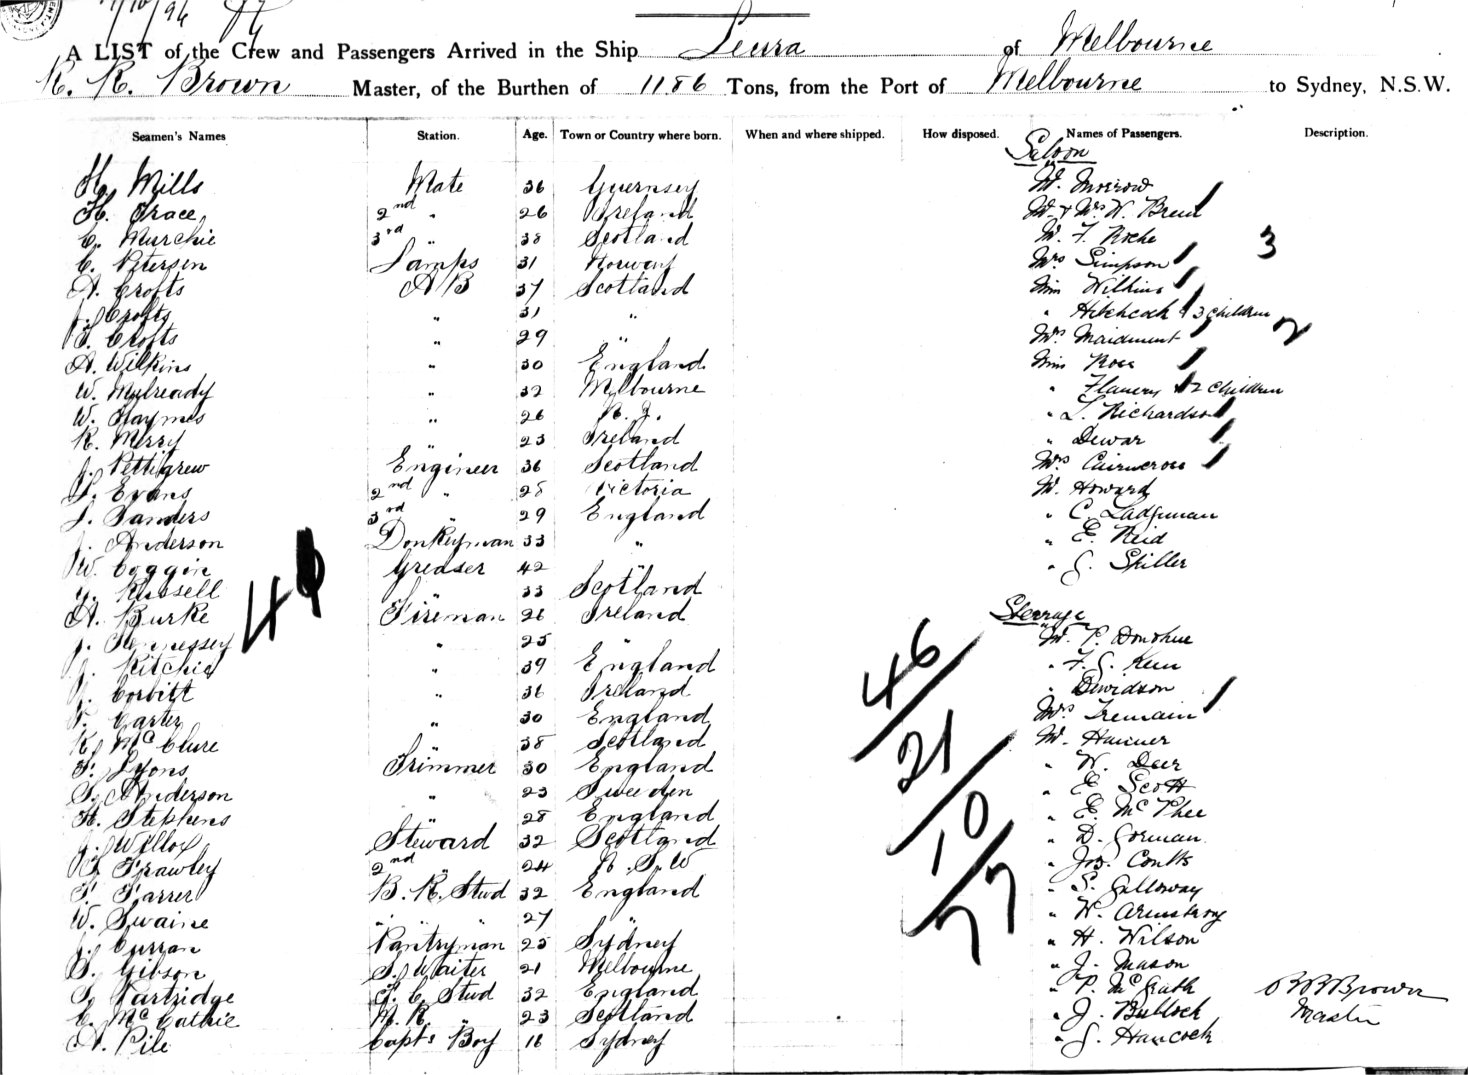 7/10/96
A LIST of the Crew and Passengers Arrived in the Ship Leura of Melbourne
R. R. Brown Master, of the Burthen of 1186 Tons, from the Port of Melbourne to Sydney, N.S.W.
Seamen's Names Station. Age. Town or Country where born. When and where shipped. How disposed. Names of Passengers. Description.
Saloon
H. Mills Mate 36 Guernsey Mr. Morrow
H. Grace 2nd " 26 Ireland Mr & Mrs W. Brent
C. Murchie 3rd " 38 Scotland Mr. F. Roche 3
C. Petersen Lamps 31 Norway Mrs Simpson
A. Crofts AB 37 Scotland Miss Wilkins
J. Crofts " 31 " " Hitchcock & 3 children
T. Crofts " 29 " Mrs Maidment 2
A. Wilkins " 30 England Miss Rose
W. Mulready " 32 Melbourne " Flanery & 2 children
W. Haymes " 26 N.Z. " L. Richardson
R. Merry " 23 Ireland " Dewar
J. Pettigrew Engineer 36 Scotland Mrs Cairncross
S. Evans 2nd " 28 Victoria Mr. Howard
J. Sanders 3rd " 29 England " C. Ladgeman
J. Anderson Donkeyman 33 " " E. Reid
W. Coggin Greaser 42 " " G. Shiller
Russell " 33 Scotland
A. Burke Fireman 26 Ireland Steerage
J. Hennessey " 25 " Mr. P. Donohue
J. Ritchie " 39 England " F. G.
J. Corbitt " 36 Ireland " Davidson
F. Carter " 30 England Mrs Tremain
R. McClure " 38 Scotland Mr. Hanner
F. Lyons Trimmer 30 England " W. Deer
S. Anderson " 23 Sweeden " E Scott
H. Stephens " 28 England " E. McPhee
J. Willox Steward 32 Scotland " D. Gorman
Frawley 2nd " 24 N.S.W " Jos. Coutts
F. Farrer B. R. Stwd 32 England " S. Galloway
W. Swaine " " " 27 " " W. Armstrong
J. Curran Pantryman 25 Sydney " H. Wilson
S. Gibson S. Waiter 21 Melbourne " J. Mason
S. Partridge F. C. Stwd 32 England " P. McGrath
C. McCathie M. R. " 23 Scotland " J. Bullock
A. Pile Capts Boy 16 Sydney " G. Hancock
46
21
10
77
R R Brown
Master